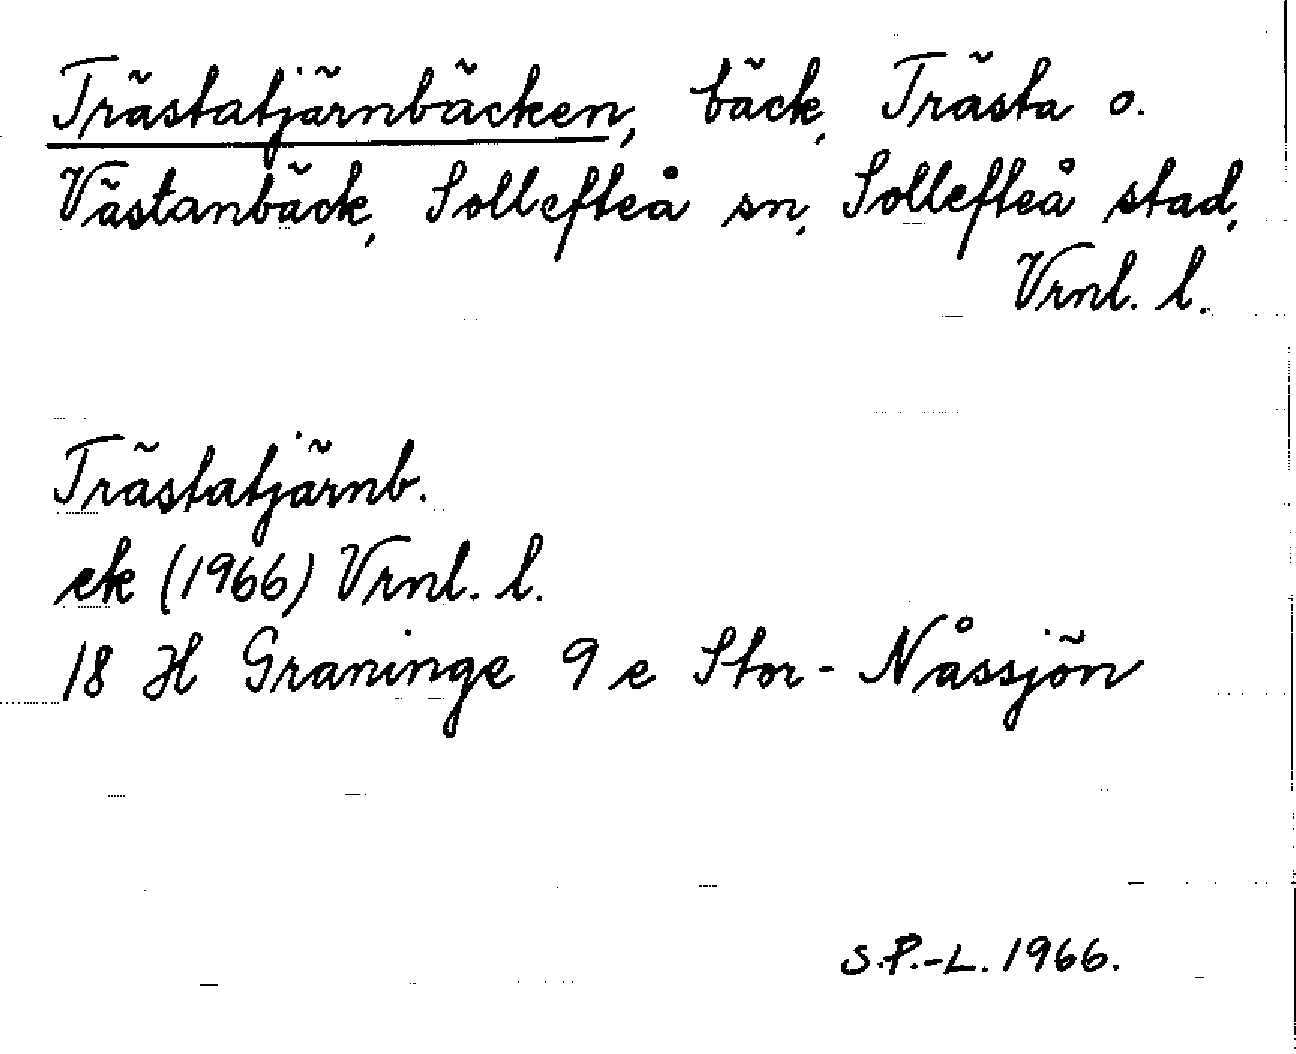 Trästatjärnbäcken, bäck, Trästa o.
Västanbäck, Sollefteå sn, Sollefteå stad,
Vrnl. l.
Trästatjärnb.
ek (1966) Vrnl. l.
18 H Graninge 9 e Stor-Nåssjön
S.P.-L. 1966.